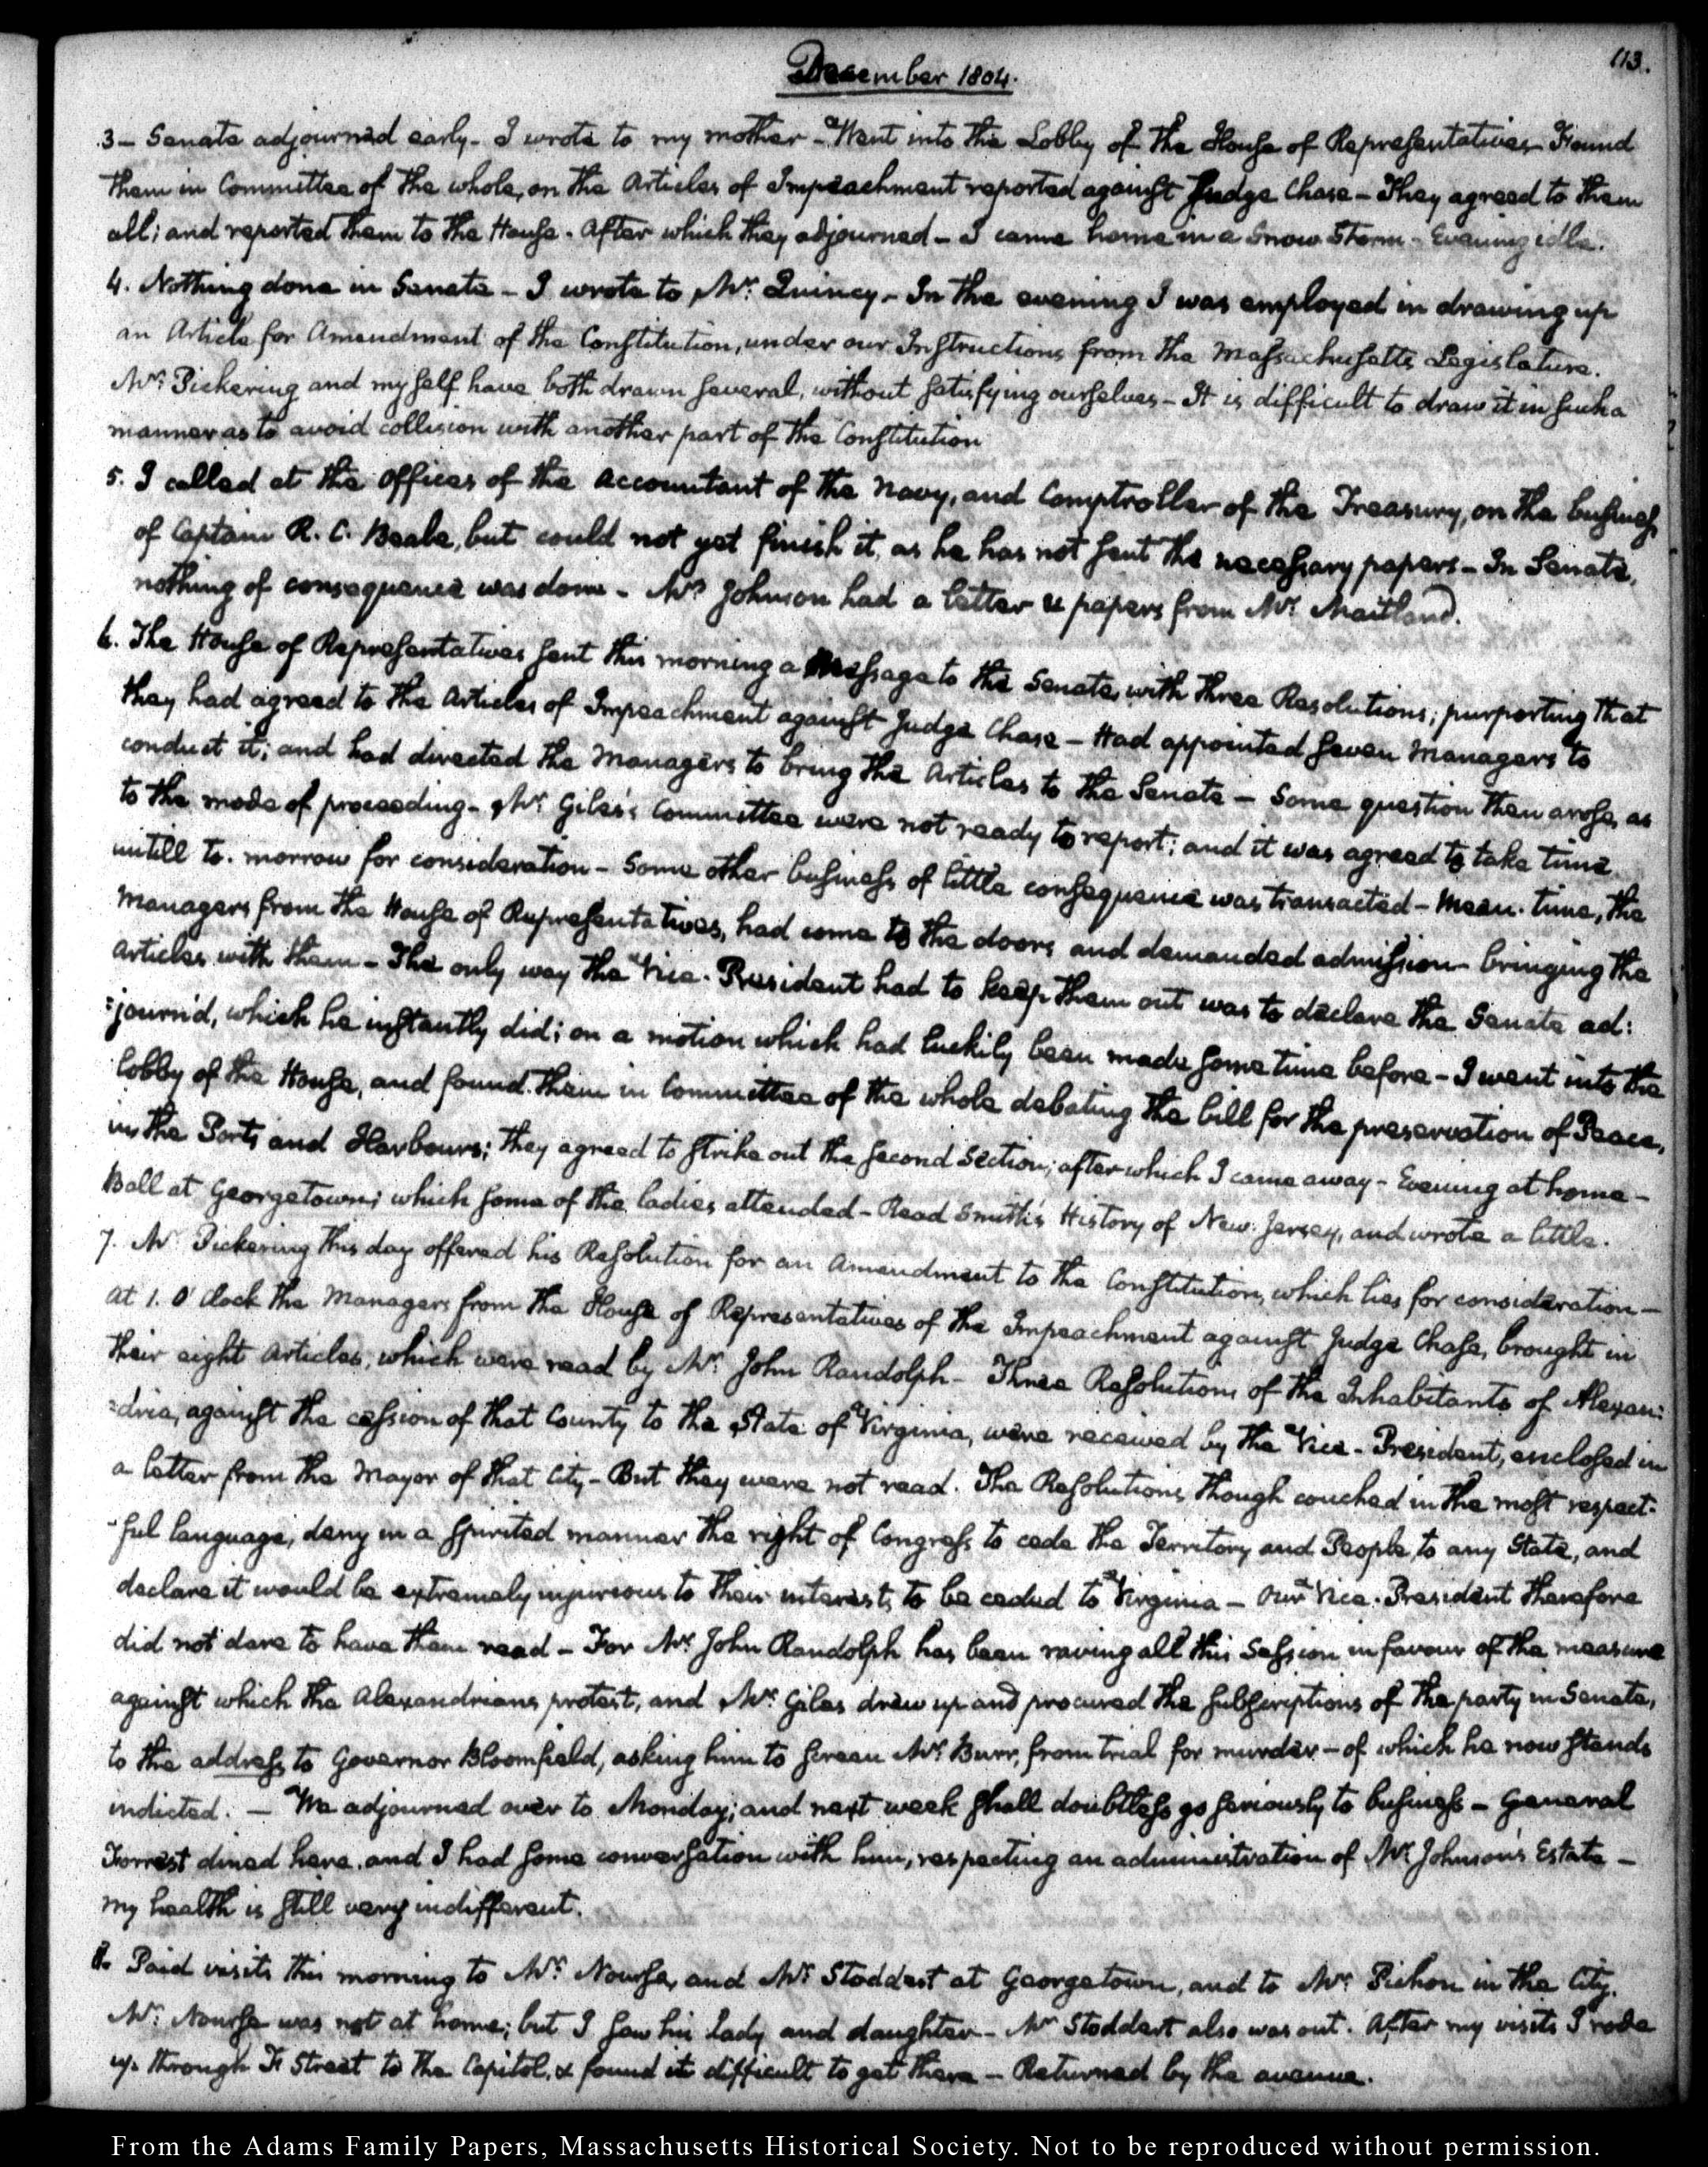 113.
December 1804.
3 – Senate adjourned early – I wrote to my mother – Went into the Lobby of the House of Representatives – Found
them in Committee of the whole, on the Articles of Impeachment reported against Judge Chase – They agreed to them
all; and reported them to the House. After which they adjourned – I came home in a Snow Storm – Evening idle.
4. Nothing done in Senate – I wrote to Mr. Quincy – In the evening I was employed in drawing up
an Article for Amendment of the Constitution, under our Instructions from the Massachusetts Legislature.
Mr. Pickering and myself have both drawn several, without satisfying ourselves – It is difficult to draw it in such a
manner as to avoid collision with another part of the Constitution
5. I called at the Offices of the Accountant of the Navy, and Comptroller of the Treasury, on the business
of Captain R. C. Beale, but could not yet finish it, as he has not sent the necessary papers – In Senate,
nothing of consequence was done – Mrs. Johnson had a letter & papers from Mr. Maitland.
6. The House of Representatives sent this morning a Message to the Senate, with three Resolutions; purporting that
they had agreed to the Articles of Impeachment against Judge Chase – Had appointed seven Managers to
conduct it; and had directed the Managers to bring the Articles to the Senate – Some question then arose, as
to the mode of proceeding – Mr. Giles's Committee were not ready to report; and it was agreed to take time
untill to-morrow for consideration – Some other business of little consequence was transacted – Mean-time, the
Managers from the House of Representatives, had come to the doors and demanded admission – bringing the
Articles with them – The only way the Vice-President had to keep them out was to declare the Senate ad:
:journ'd, which he instantly did; on a motion which had luckily been made some time before – I went into the
lobby of the House, and found them in Committee of the whole debating the bill for the preservation of Peace,
in the Ports and Harbours; they agreed to strike out the second Section; after which I came away – Evening at home –
Ball at Georgetown; which some of the ladies attended – Read Smith's History of New-Jersey, and wrote a little.
7. Mr. Pickering this day offered his Resolution for an Amendment to the Constitution, which lies for consideration –
At 1. O'clock the Managers from the House of Representatives of the Impeachment against Judge Chase, brought in
their eight Articles, which were read by Mr. John Randolph – Three Resolutions of the Inhabitants of Alexan:
:dria, against the cession of that County to the State of Virginia, were received by the Vice-President, enclosed in
a letter from the Mayor of that City – But they were not read. The Resolutions, though couched in the most respect-
-ful language, deny in a spirited manner the right of Congress to cede the Territory and People, to any State, and
declare it would be extremely injurious to their interests, to be ceded to Virginia – Our Vice-President therefore
did not dare to have them read – For Mr. John Randolph has been raving all this Session in favour of the measure
against which the Alexandrians protest, and Mr. Giles drew up and procured the subscriptions of the party in Senate,
to the address to Governor Bloomfield, asking him to screen Mr. Burr, from trial for murder – of which he now stands
indicted. – We adjourned over to Monday; and next week shall doubtless go seriously to business – General
Forrest dined here, and I had some conversation with him, respecting an administration of Mr. Johnson's Estate –
My health is still very indifferent.
8. Paid visits this morning to Mr. Nourse, and Mr. Stoddert at Georgetown, and to Mr. Pichon in the City.
Mr. Nourse was not at home; but I saw his Lady and daughter – Mr. Stoddert also was out. After my visits I rode
up through F. Street to the Capitol, & found it difficult to get there – Returned by the avenue.
From the Adams Family Papers, Massachusetts Historical Society. Not to be reproduced without permission.